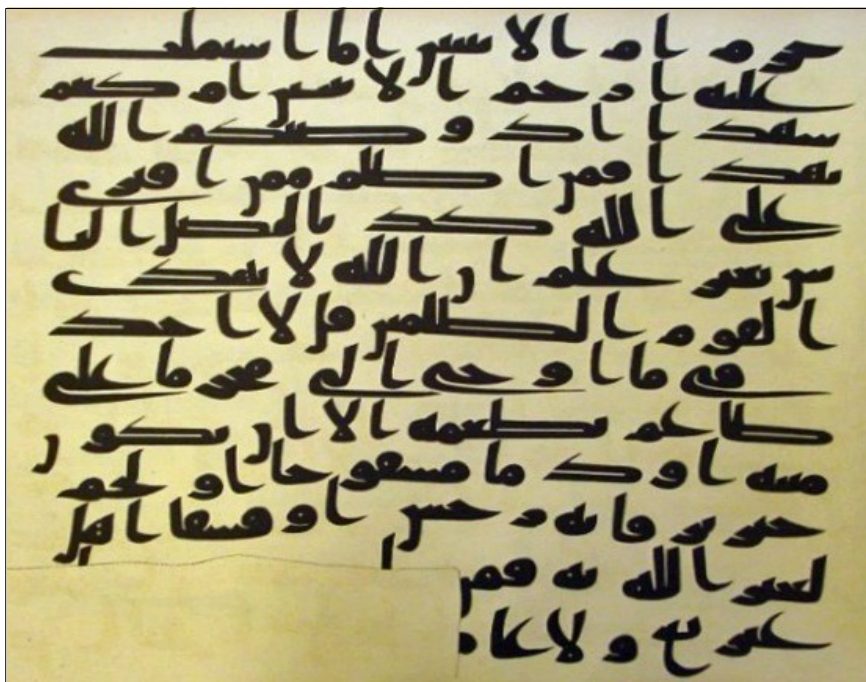 حرم ام الانثيين اما اشتملت
عليه ارحم الانثيين ام كنتم
شهدا اذ وصيكم الله
بهذا فمن اظلم ممن افترى
على الله كذبا ليضل النا
س بغير علم ان الله لا يهدى
القوم الظلمين قل لا اجد
فى ما اوحى الى محرما على
طاعم يطعمه الا ان يكون
ميتة او دما مسفوحا او لحم
خنزير فانه رجس او فسقا اهل
لغير الله به فمن
غير باغ ولا عاد